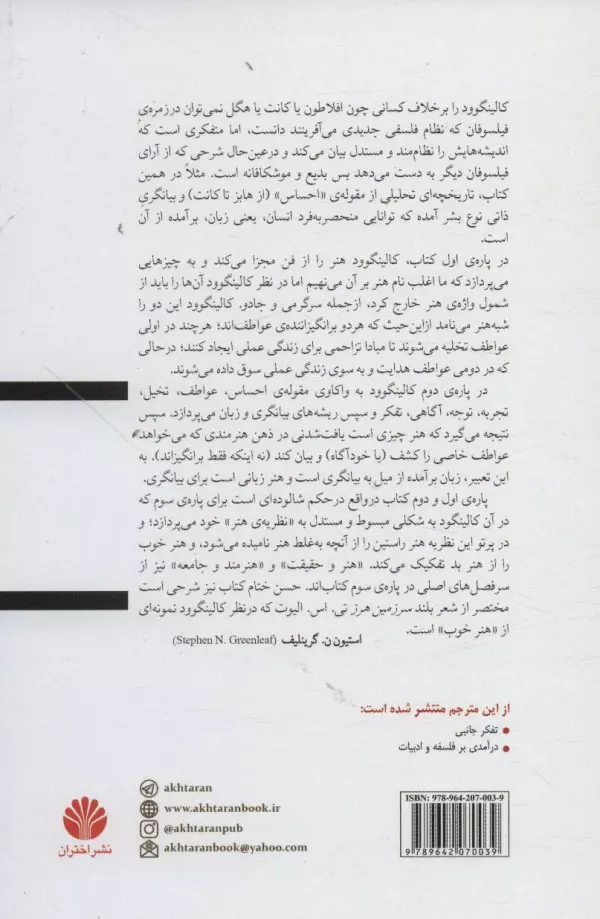 کالینگوود را برخلاف کسانی چون افلاطون یا کانت یا هگل نمی‌توان در زمره‌ی
فیلسوفان که نظام فلسفی جدیدی می‌آفرینند دانست، اما متفکری است که
اندیشه‌هایش را نظام‌مند و مستدل بیان می‌کند و درعین‌حال شرحی که از آرای
فیلسوفان دیگر به دست می‌دهد بس بدیع و موشکافانه است. مثلاً در همین
کتاب، تاریخچه‌ای تحلیلی از مقوله‌ی «احساس» (از هابز تا کانت) و بیانگریِ
ذاتی نوع بشر آمده که توانایی منحصربه‌فرد انسان، یعنی زبان، برآمده از آن
است.
در پاره‌ی اول کتاب، کالینگوود هنر را از فن مجزا می‌کند و به چیزهایی
می‌پردازد که ما اغلب نام هنر بر آن می‌نهیم اما در نظر کالینگوود آن‌ها را باید از
شمول واژه‌ی هنر خارج کرد، ازجمله سرگرمی و جادو. کالینگوود این دو را
شبه‌هنر می‌نامد ازاین‌حیث که هردو برانگیزاننده‌ی عواطف‌اند؛ هرچند در اولی
عواطف تخلیه می‌شوند تا مبادا تزاحمی برای زندگی عملی ایجاد کنند؛ درحالی
که در دومی عواطف هدایت و به سوی زندگی عملی سوق داده می‌شوند.
در پاره‌ی دوم کالینگوود به واکاوی مقوله‌ی احساس، عواطف، تخیل،
تجربه، توجه، آگاهی، تفکر و سپس ریشه‌های بیانگری و زبان می‌پردازد. سپس
نتیجه می‌گیرد که هنر چیزی است یافت‌شدنی در ذهن هنرمندی که می‌خواهد
عواطف خاصی را کشف (یا خودآگاه) و بیان کند (نه اینکه فقط برانگیزاند). به
این تعبیر، زبان برآمده از میل به بیانگری است و هنر زبانی است برای بیانگری.
پاره‌ی اول و دوم کتاب درواقع درحکم شالوده‌ای است برای پاره‌ی سوم که
در آن کالینگود به شکلی مبسوط و مستدل به «نظریه‌ی هنر» خود می‌پردازد؛ و
در پرتو این نظریه هنر راستین را از آنچه به‌غلط هنر نامیده می‌شود، و هنر خوب
را از هنر بد تفکیک می‌کند. «هنر و حقیقت» و «هنرمند و جامعه» نیز از
سرفصل‌های اصلی در پاره‌ی سوم کتاب‌اند. حسن ختام کتاب نیز شرحی است
مختصر از شعر بلند سرزمین هرز تی. اس. الیوت که درنظر کالینگوود نمونه‌ای
از «هنر خوب» است.
استیون ن. گرینلیف (Stephen N. Greenleaf)
از این مترجم منتشر شده است:
● تفکر جانبی
● درآمدی بر فلسفه و ادبیات
akhtaran
www.akhtaranbook.ir
@akhtaranpub
akhtaranbook@yahoo.com
نشر اختران
ISBN: 978-964-207-003-9
9 789642 070039